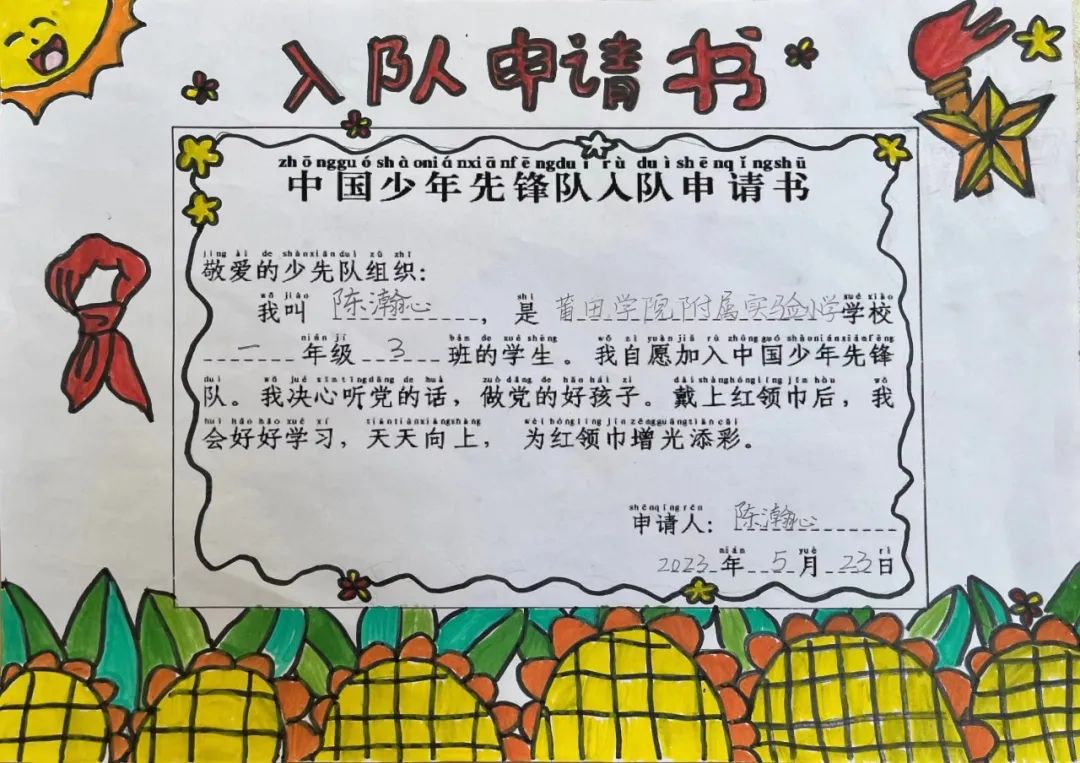 入队申请书
zhōngguóshàoniánxiānfēngduì rù duìshēnqǐngshū
中国少年先锋队入队申请书
jìng ài de shàoxiānduì zǔ zhī
敬爱的少先队组织：
wǒ jiào shì xué xiào
我叫 陈瀚心 ，是 莆田学院附属实验小学学校
nián jí bān de xué shēng wǒ zì yuàn jiā rù zhōng guó shàoniánxiānfēng
一 年级 3 班的学生。我自愿加入中国少年先锋
duì wǒ jué xīn tīng dǎng de huà zuò dǎng de hǎo hái zi dài shàng hóng lǐng jīn hòu wǒ
队。我决心听党的话，做党的好孩子。戴上红领巾后，我
huì hǎo hǎo xué xí tiān tiān xiàng shàng wèi hóng lǐng jīn zēng guāng tiān cǎi
会好好学习，天天向上， 为红领巾增光添彩。
shēn qǐng rén
申请人： 陈瀚心
nián yuè rì
2023 年 5 月 23 日